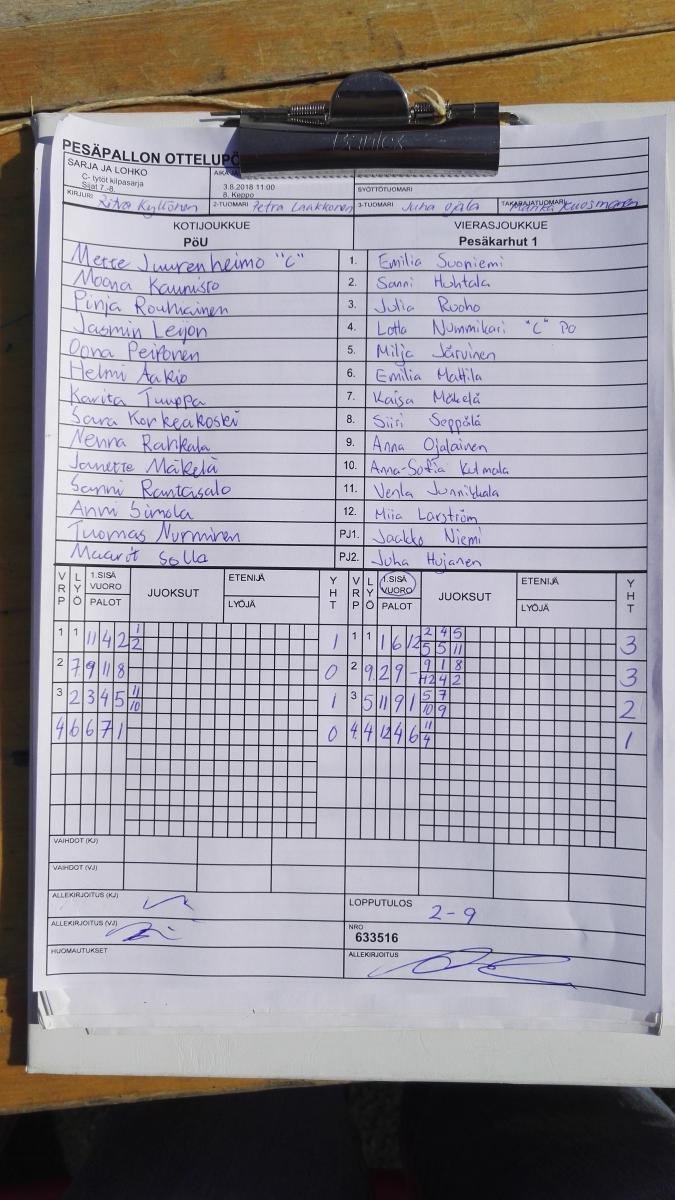 Bantex
PESÄPALLON OTTELUPÖ
SARJA JA LOHKO
C- tytöt kilpasarja
Sijat 7.-8.
3.8.2018 11:00
8. Keppo
SYÖTTÖTUOMARI
KIRJURI Ritva Kyllönen 2-TUOMARI Petra Laakkonen 3-TUOMARI Juha Ojala TAKARAJATUOMARI Marika Kuosmanen
KOTIJOUKKUE VIERASJOUKKUE
PöU Pesäkarhut 1
Mette Juurenheimo "C" 1. Emilia Suoniemi
Moona Kaunisto 2. Sanni Huhtala
Pinja Rouhiainen 3. Julia Ruoho
Jasmin Leijon 4. Lotta Nummikari "C" PO
Oona Peltonen 5. Milja Järvinen
Helmi Aakio 6. Emilia Mattila
Karita Tuuppa 7. Kaisa Mäkelä
Sara Korkeakoski 8. Siiri Seppälä
Nenna Rahkala 9. Anna Ojalainen
Janette Mäkelä 10. Anna-Sofia Kulmala
Sanni Rantasalo 11. Venla Junnikkala
Anni Simola 12. Miia Larström
Tuomas Nurminen PJ1. Jaakko Niemi
Maarit Solla PJ2. Juha Hujanen
VRP LYÖ 1.SISÄ VUORO PALOT JUOKSUT ETENIJÄ LYÖJÄ YHT VRP LYÖ 1.SISÄ VUORO PALOT JUOKSUT ETENIJÄ LYÖJÄ YHT
1 1 11 4 2 1 1 1 1 1 6 12 2 4 5 3
2 5 5 11
2 7 9 11 8 0 2 9 2 9 - 9 1 8 3
12 4 2
3 2 3 4 5 11 1 3 5 11 9 1 5 7 2
10 10 9
4 6 6 7 1 0 4. 4 12 4 6 11 1
4
VAIHDOT (KJ)
VAIHDOT (VJ)
ALLEKIRJOITUS (KJ) LOPPUTULOS
2-9
ALLEKIRJOITUS (VJ) NRO
633516
HUOMAUTUKSET ALLEKIRJOITUS